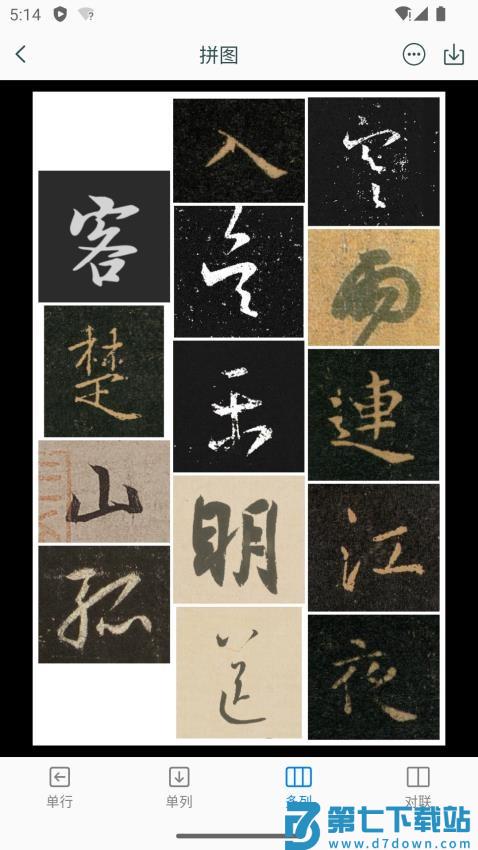 5:14
拼图
寒雨連江夜
入吳平明送
客楚山孤
单行
单列
多列
对联
第七下载站
www.d7down.com